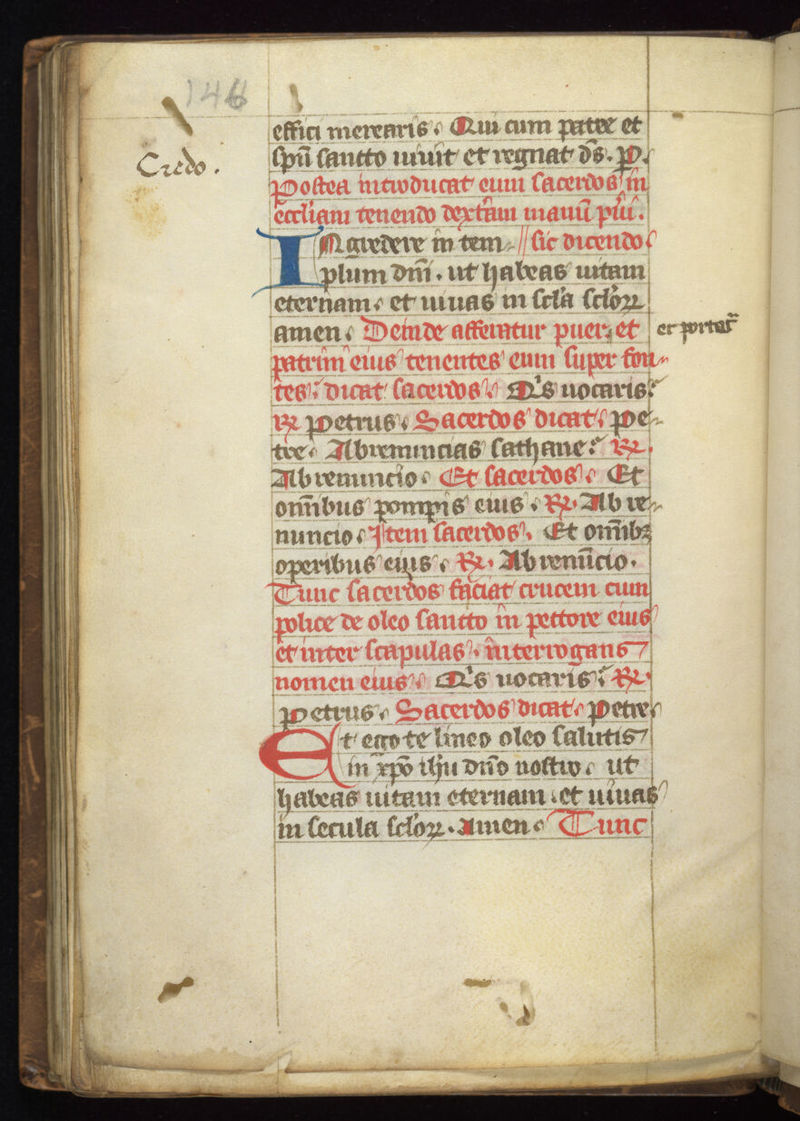 146
effici merearis. Qui cum patre et
Credo.
spũ santto uiuit et regnat ds̃. P.
Postea introducat eum sacerdos in
ecclĩam tenendo dextrãm manũ p̃ui.
INgredere in tem- // sic dicendo
plum dñi. ut habeas uitam
eternam. et uiuas in scl̃a scl̃oꝝ
amen. Deinde afferatur puer, et
et portet̃
patrini eius tenentes eum super fon-
tes. dicat sacerdos. Q̃s uocaris?
℟ Petrus. Sacerdos dicat. Pe-
tre. Abrenuncias sathane? ℟.
Abrenuncio. Et sacerdos. Et
om̃ibus pompis eius. ℟. Abre-
nuncio. Item sacerdos. Et om̃ibꝫ
operibus eius. ℟. Abrenũcio.
Tunc sacerdos faciat crucem cum
police de oleo santto in pettore eius
et inter scapulas. interrogans
nomen eius. Q̃s uocaris? ℟.
Petrus. Sacerdos dicat. Petre.
Et ego te lineo oleo salutis
in xp̃o ihũ dño nostro. ut
habeas uitam eternam. et uiuas
in secula scl̃oꝝ. Amen. Tunc